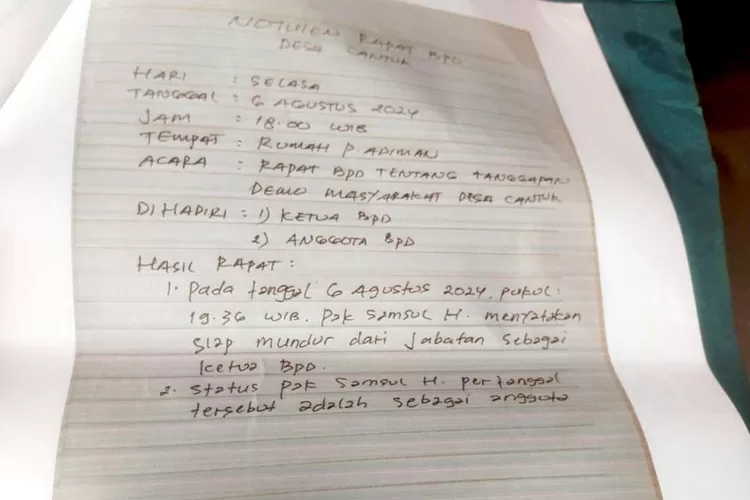 NOTULEN RAPAT BPD
DESA CANTUK
HARI : SELASA
TANGGAL : 6 AGUSTUS 2024
JAM : 18.00 WIB
TEMPAT : RUMAH P. ADIMAN
ACARA : RAPAT BPD TENTANG TANGGAPAN
DEMO MASYARAKAT DESA CANTUK
DIHADIRI : 1) KETUA BPD
2) ANGGOTA BPD
HASIL RAPAT :
1. Pada tanggal 6 Agustus 2024. pukul :
19.36 WIB. Pak Samsul H. menyatakan
siap mundur dari Jabatan sebagai
Ketua BPD.
2. Status Pak Samsul H. per tanggal
tersebut adalah sebagai anggota